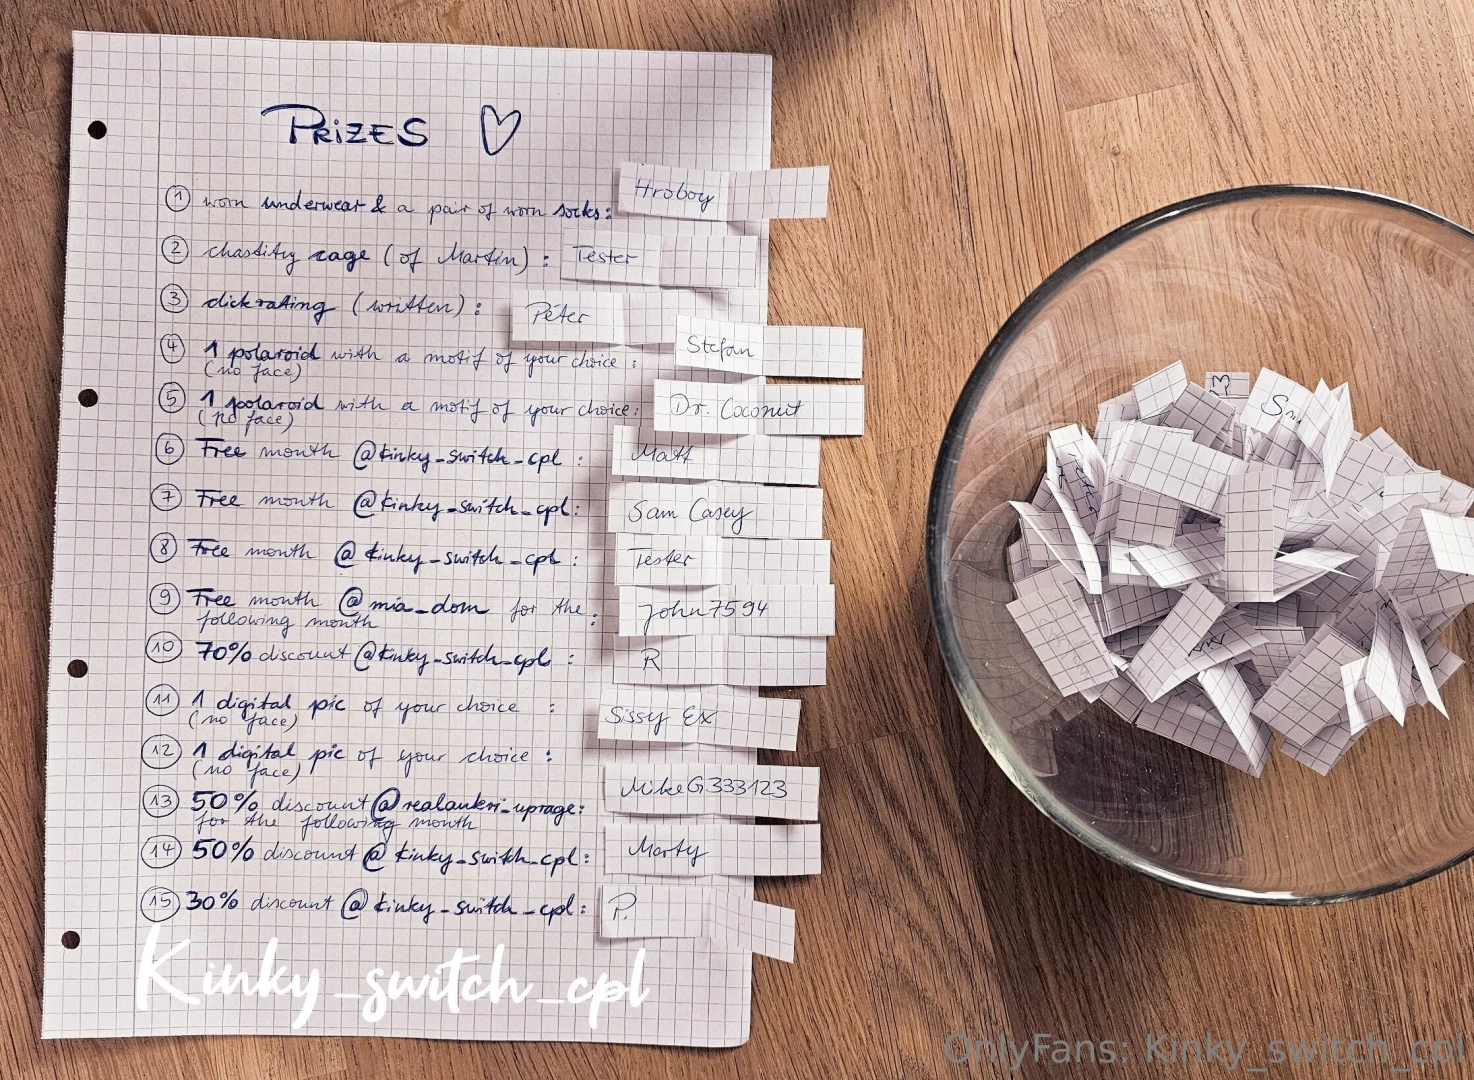 PRIZES ♡
① worn underwear & a pair of worn socks: Hroboy
② chastity cage (of Martin) : Tester
③ dickrating (written) : Péter
④ 1 polaroid with a motif of your choice : Stefan
(no face)
⑤ 1 polaroid with a motif of your choice: Dr. Coconut
(no face)
⑥ Free month @kinky_switch_cpl : Matt
⑦ Free month @kinky_switch_cpl: Sam Casey
⑧ Free month @kinky_switch_cpl : Tester
⑨ Free month @mia_dom for the : john7594
following month
⑩ 70% discount @kinky_switch_cpl : R
⑪ 1 digital pic of your choice : Sissy Ex
(no face)
⑫ 1 digital pic of your choice : MikeG333123
(no face)
⑬ 50% discount @realankri_uprage:
for the following month
⑭ 50% discount @kinky_switch_cpl: Marty
⑮ 30% discount @kinky_switch_cpl: P.
Kinky_switch_cpl
OnlyFans: Kinky_switch_cpl